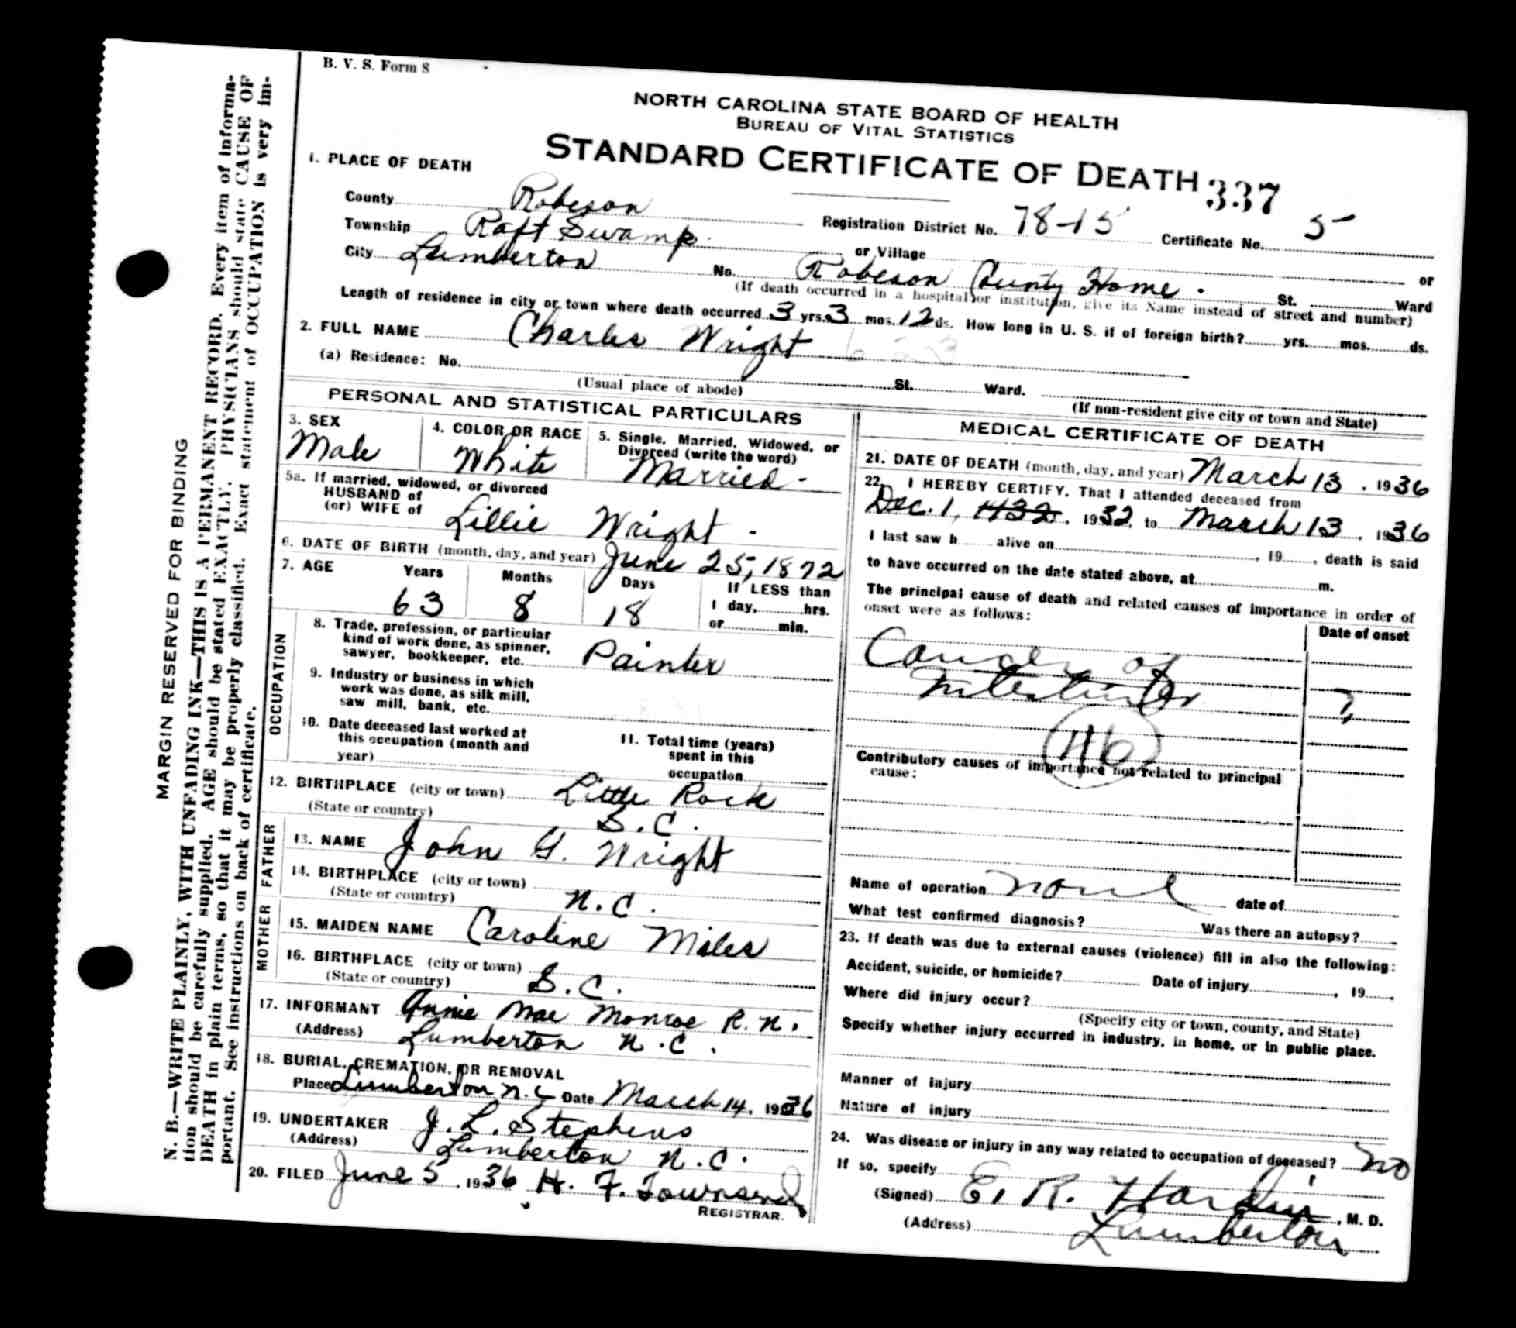 B. V. S. Form 8
NORTH CAROLINA STATE BOARD OF HEALTH
BUREAU OF VITAL STATISTICS
STANDARD CERTIFICATE OF DEATH 337
1. PLACE OF DEATH
County Robeson Registration District No. 78-15 Certificate No. 5
Township Raft Swamp or Village or
City Lumberton No. Robeson County Home. St. Ward
(If death occurred in a hospital or institution, give its Name instead of street and number)
Length of residence in city or town where death occurred 3 yrs. 3 mos. 12 ds. How long in U. S. if of foreign birth? yrs. mos. ds.
2. FULL NAME Charles Wright
(a) Residence: No. St. Ward.
(Usual place of abode) (If non-resident give city or town and State)
PERSONAL AND STATISTICAL PARTICULARS
3. SEX 4. COLOR OR RACE 5. Single, Married, Widowed, or Divorced (write the word)
Male White Married.
5a. If married, widowed, or divorced
HUSBAND of
(or) WIFE of Lillie Wright.
6. DATE OF BIRTH (month, day, and year) June 25, 1872
7. AGE Years Months Days If LESS than
63 8 18 1 day, hrs.
or min.
OCCUPATION
8. Trade, profession, or particular
kind of work done, as spinner,
sawyer, bookkeeper, etc. Painter
9. Industry or business in which
work was done, as silk mill,
saw mill, bank, etc.
10. Date deceased last worked at
this occupation (month and
year)
11. Total time (years)
spent in this
occupation
12. BIRTHPLACE (city or town) Little Rock
(State or country) S.C.
FATHER
13. NAME John G. Wright
14. BIRTHPLACE (city or town)
(State or country) N.C.
MOTHER
15. MAIDEN NAME Caroline Miles
16. BIRTHPLACE (city or town)
(State or country) S.C.
17. INFORMANT Annie Mae Monroe R.N.
(Address) Lumberton N.C.
18. BURIAL, CREMATION, OR REMOVAL
Place Lumberton N.C Date March 14, 1936
19. UNDERTAKER J. L. Stephens
(Address) Lumberton N.C.
20. FILED June 5, 1936 H. F. Townsend
REGISTRAR.
MEDICAL CERTIFICATE OF DEATH
21. DATE OF DEATH (month, day, and year) March 13, 1936
22. I HEREBY CERTIFY, That I attended deceased from
Dec. 1, 1932, 1932 to March 13, 1936
I last saw h alive on , 19 , death is said
to have occurred on the date stated above, at m.
The principal cause of death and related causes of importance in order of
onset were as follows: Date of onset
Cancer of
Intestines ?
46
Contributory causes of importance not related to principal
cause:
Name of operation none date of
What test confirmed diagnosis? Was there an autopsy?
23. If death was due to external causes (violence) fill in also the following:
Accident, suicide, or homicide? Date of injury , 19 ,
Where did injury occur?
(Specify city or town, county, and State)
Specify whether injury occurred in industry, in home, or in public place.
Manner of injury
Nature of injury
24. Was disease or injury in any way related to occupation of deceased? no
If so, specify
(Signed) E. R. Hardin, M. D.
(Address) Lumberton
MARGIN RESERVED FOR BINDING
N. B.—WRITE PLAINLY, WITH UNFADING INK—THIS IS A PERMANENT RECORD. Every item of informa-
tion should be carefully supplied. AGE should be stated EXACTLY. PHYSICIANS should state CAUSE OF
DEATH in plain terms, so that it may be properly classified. Exact statement of OCCUPATION is very im-
portant. See instructions on back of certificate.